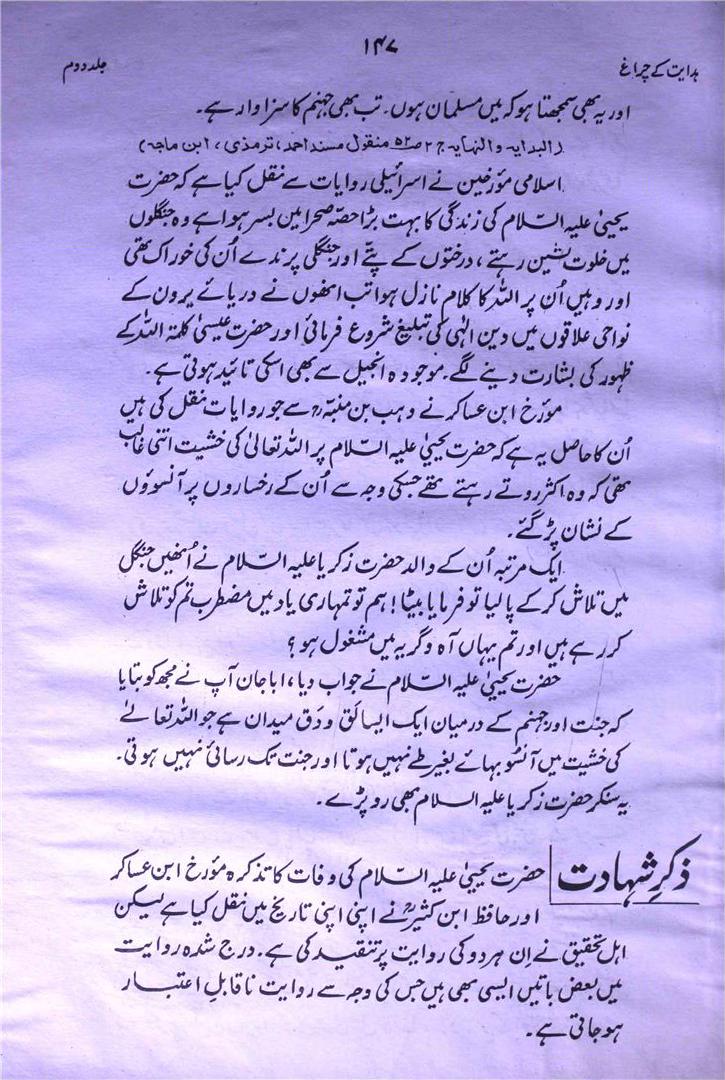 ۱۴۷
ہدایت کے چراغ
جلد دوم
اور یہ بھی سمجھتا ہو کہ میں مسلمان ہوں۔ تب بھی جہنم کا سزاوار ہے۔
(البدایہ والنہایہ ج۲ ص۵۲ منقول مسند احمد، ترمذی، ابن ماجہ)
اسلامی مؤرخین نے اسرائیلی روایات سے نقل کیا ہے کہ حضرت
یحییٰ علیہ السّلام کی زندگی کا بہت بڑا حصّہ صحرا میں بسر ہوا ہے وہ جنگلوں
میں خلوت نشین رہتے، درختوں کے پتّے اور جنگلی پرندے اُن کی خوراک تھی
اور وہیں اُن پر اللہ کا کلام نازل ہوا تب انھوں نے دریائے یرون کے
نواحی علاقوں میں دین الٰہی کی تبلیغ شروع فرمائی اور حضرت عیسیٰ کلمۃ اللہ کے
ظہور کی بشارت دینے لگے۔ موجودہ انجیل سے بھی اسکی تائید ہوتی ہے۔
مؤرخ ابن عساکر نے وہب بن منبہؒ سے جو روایات نقل کی ہیں
اُن کا حاصل یہ ہے کہ حضرت یحییٰ علیہ السّلام پر اللہ تعالیٰ کی خشیت اتنی غالب
تھی کہ وہ اکثر روتے رہتے تھے جسکی وجہ سے اُن کے رخساروں پر آنسوؤں
کے نشان پڑ گئے۔
ایک مرتبہ اُن کے والد حضرت زکریا علیہ السّلام نے اُنھیں جنگل
میں تلاش کر کے پا لیا تو فرمایا بیٹا! ہم تو تمہاری یاد میں مضطرب تم کو تلاش
کر رہے ہیں اور تم یہاں آہ وگریہ میں مشغول ہو؟
حضرت یحییٰ علیہ السّلام نے جواب دیا، اباجان آپ نے مجھ کو بتایا
کہ جنت اور جہنم کے درمیان ایک ایسا لَق و دَق میدان ہے جو اللہ تعالےٰ
کی خشیت میں آنسُو بہائے بغیر طے نہیں ہوتا اور جنت تک رسائی نہیں ہوتی۔
یہ سنکر حضرت زکریا علیہ السلام بھی رو پڑے۔
ذکرِ شہادت
حضرت یحییٰ علیہ السّلام کی وفات کا تذکرہ مؤرخ ابن عساکر
اور حافظ ابن کثیرؒ نے اپنی اپنی تاریخ میں نقل کیا ہے لیکن
اہل تحقیق نے اِن ہر دو کی روایت پر تنقید کی ہے۔ درج شدہ روایت
میں بعض باتیں ایسی بھی ہیں جس کی وجہ سے روایت ناقابلِ اعتبار
ہو جاتی ہے۔